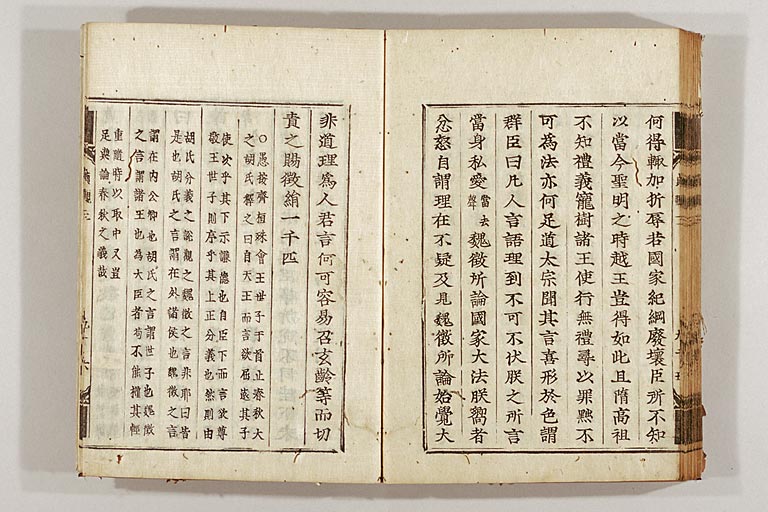 何得輙加折辱若國家紀綱廢壞臣所不知
以當今聖明之時越王豈得如此且隋高祖
不知禮義寵樹諸王使行無禮尋以罪黜不
可為法亦何足道太宗聞其言喜形於色謂
群臣曰凡人言語理到不可不伏朕之所言
當身私愛當去聲魏徵所論國家大法朕嚮者
忿怒自謂理在不疑及見魏徵所論始覺大
非道理為人君言何可容易召玄齡等而切
責之賜徵絹一千匹
○愚按齊桓殊會王世子于首止春秋大
之胡氏釋之曰自天王而言欲屈遠其子
使次乎其下示謙德也自臣下而言欲尊
敬王世子則序乎其上正分義也然則由
胡氏分義之說觀之魏徵之言非耶曰皆
是也胡氏之言謂在外諸侯也魏徵之言
謂在內公卿也胡氏之言謂世子也魏徵
之言謂諸王也為大臣者苟不能權其輕
重隨時以取中又豈
足與論春秋之義哉